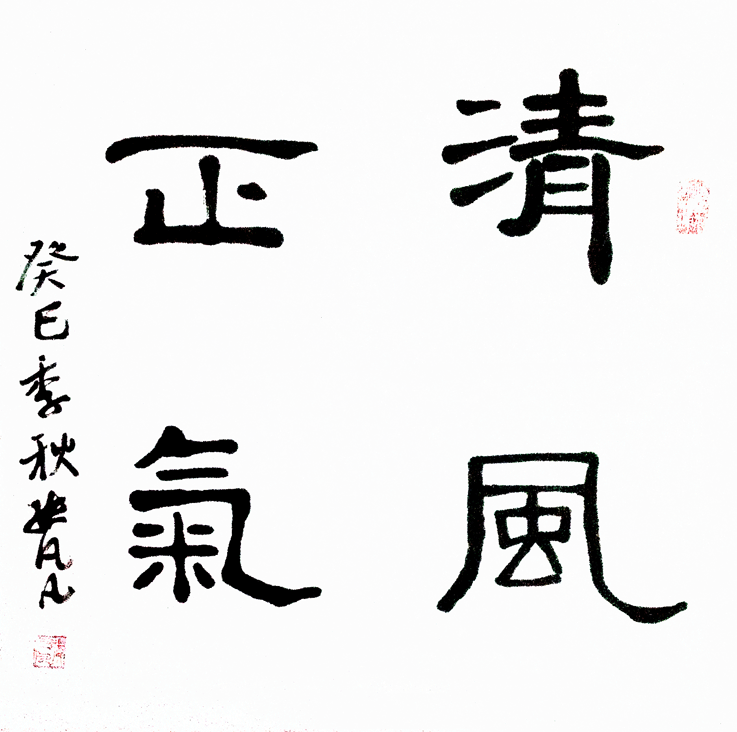 清風
正氣
癸巳季秋